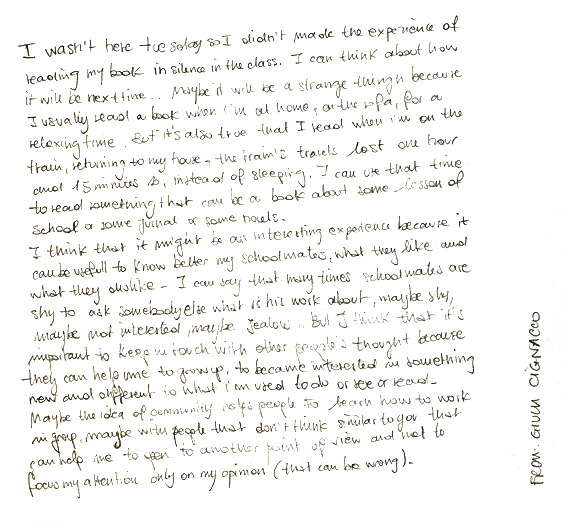 I wasn't here tuesday so I didn't made the experience of
reading my book in silence in the class. I can think about how
it will be next time... Maybe it will be a strange thing because
I usually read a book when i'm at home, on the sofa, for a
relaxing time. But it's also true that I read when i'm on the
train, returning to my house, the train's travels last one hour
and 15 minutes so, instead of sleeping, I can use that time
to read something that can be a book about some lesson of
school or some jurnal or some novels.
I think that it might be an interesting experience because it
can be usefull to know better my schoolmates, what they like and
what they dislike - I can say that many times schoolmates are
shy to ask somebody else what is his work about, maybe shy,
maybe not interested, maybe jealow... But I think that it's
important to keep in touch with other people's thought because
they can help me to grow up, to became interested in something
new and different is what i'm used to do or see or read -
Maybe the idea of community helps people to teach how to work
in group, maybe with people that don't think similar to you that
can help me to open to another point of view and not to
focus my attention only on my opinion (that can be wrong).
FROM: GIULIA CIGNACCO